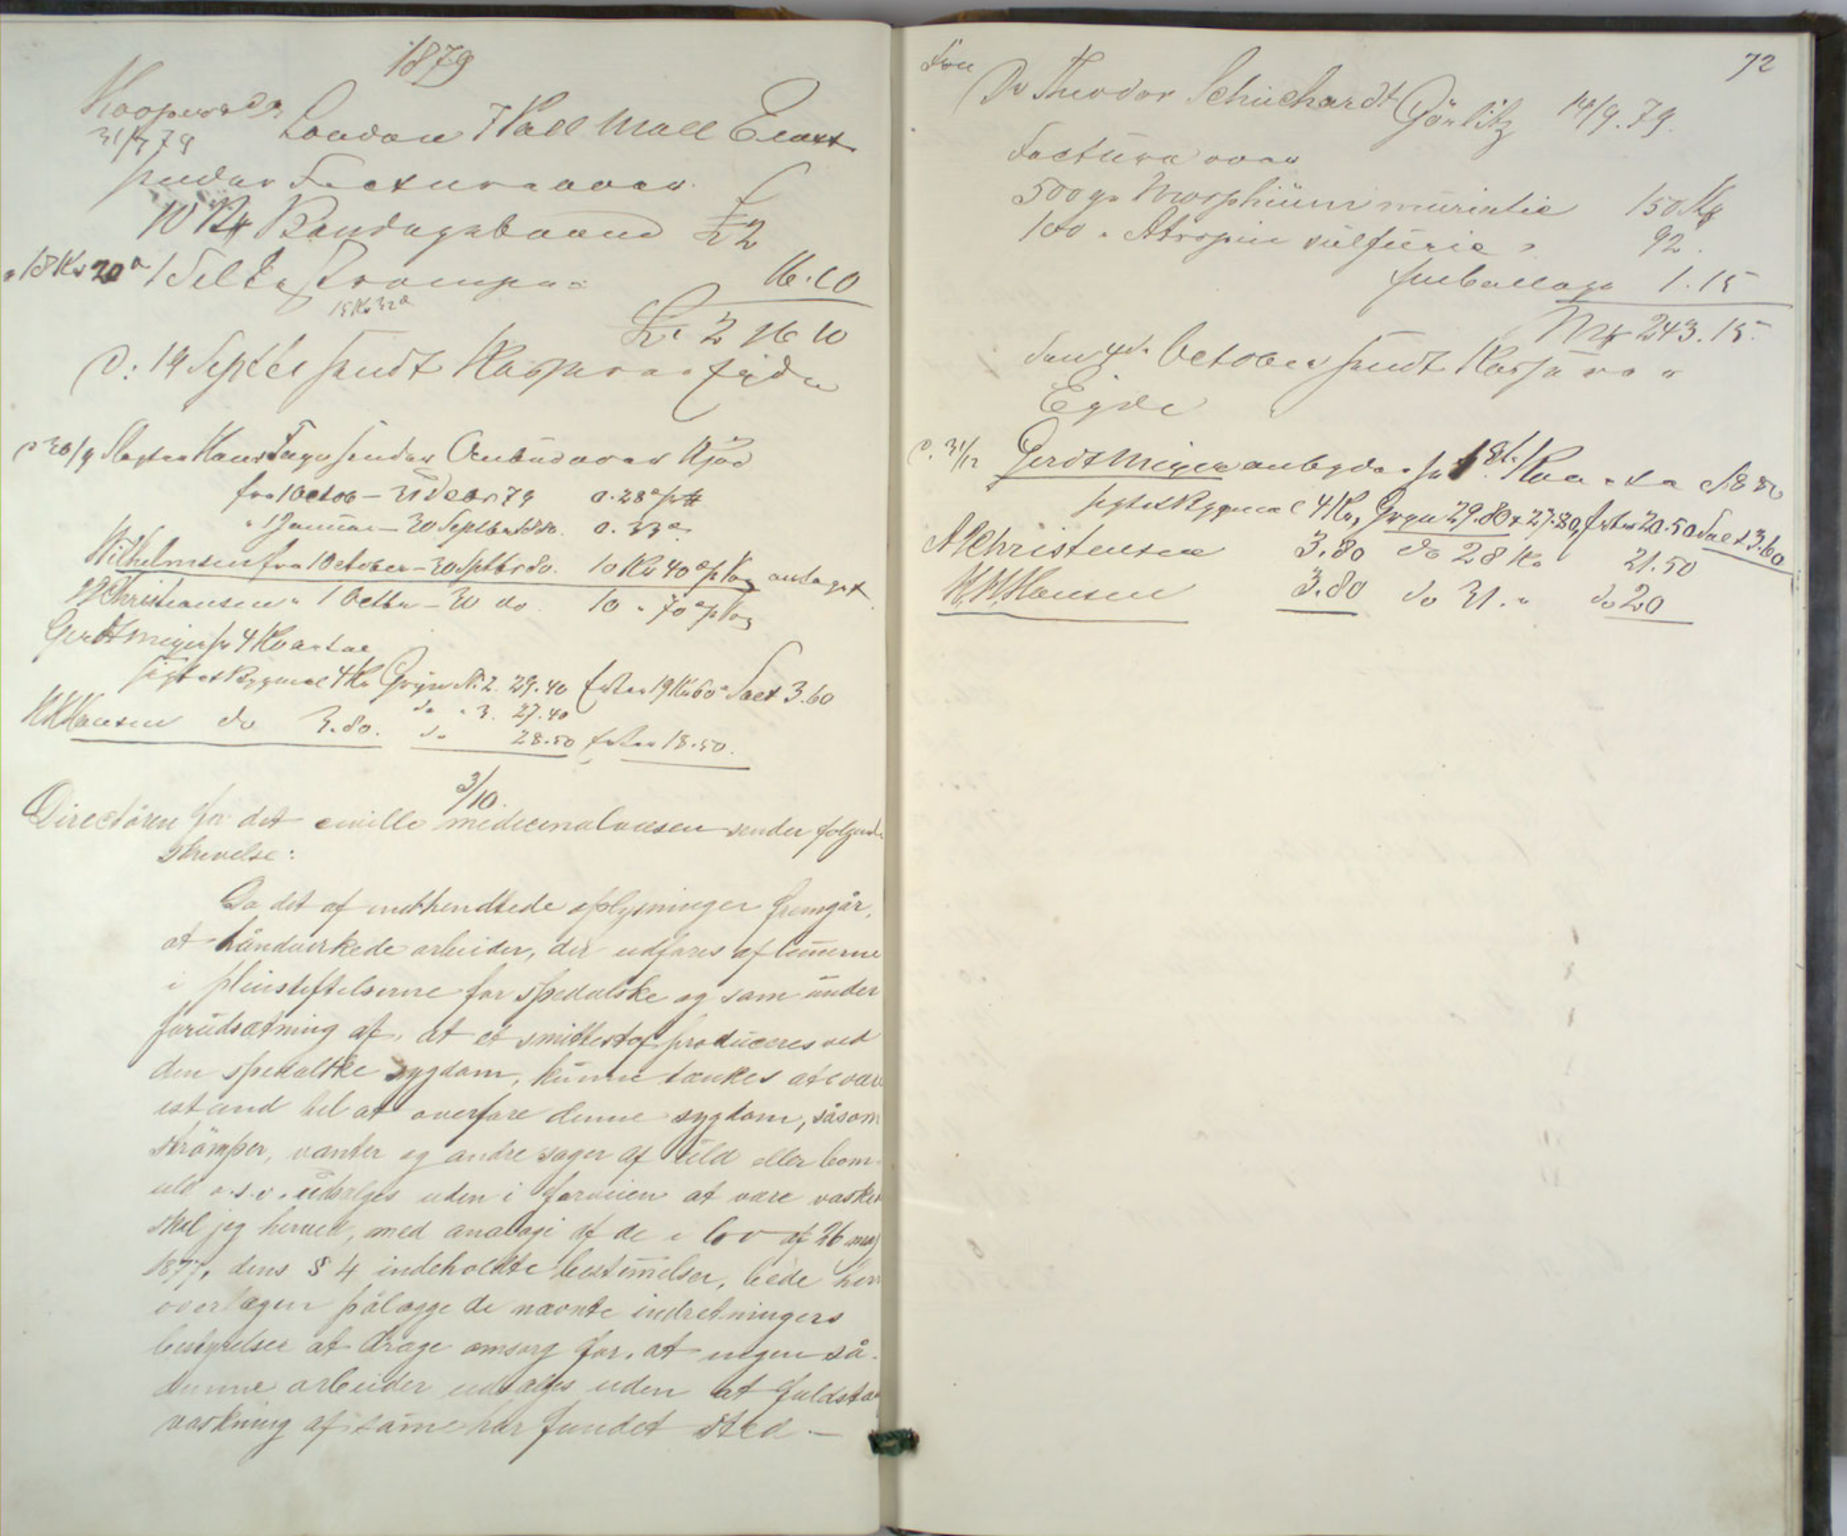 1879
Hooper & Co
31/7 79 London 7 Pall Mall East
sender Factura over
10 St Bandagebaand £ 2
18 Kr 20 ø 1 Silke Strømpe 16.10
15 Kr 32 ø
£ 2 16 10
D: 19 Septbr sendt Kasserer Eide
d 30/9 Slagter Hans Fage sender Anbud over Kjød
fra 1 Octob – 31 Decbr 79 0.28 ø pr ℔
" 1 Januar – 30 Septbr 80. 0.33 ø
Wilhelmsen fra 1 October – 30 Septbr 80. 10 Kr 40 ø p Vog antaget
Christiansen " 1 Octbr – 30 do. 10 " 70 ø p Vog
Gerdt Meyer for 4 Kvartal
sigtet Rygmel 4 Kr Gryn N. 2. 29.40 Erter 19 Kr 60 ø Salt 3.60
do " 3. 27.40
H. H. Hansen do 3.80. do 28.50 Erter 18.50.
3/10.
Directören for det civille medicinalvæsen sender følgende
skrivelse:
Da det af indhendtede oplysninger fremgår,
at håndverkede arbeider, der udføres af lemerne
i pleiestiftelserne for spedalske og som under
forudsætning af, at et smittestof produceres ved
den spedalske sygdom, kunne tænkes at være
istand til at overføre denne sygdom, såsom
strömper, vanter og andre sager af uld eller bom-
uld o.s.v. udsælges uden i forveien at være vasket
skal jeg herved, med analogi af de i lov af 26 maj
1877, dens § 4 indeholdte bestemelser, bede herr
overlægen pålægge de nævnte indretningers
bestyrelser at drage omsorg for, at ingen så-
danne arbeider udsælges uden at fuldstæ
vaskning af same har fundet sted. –
72
Fra
Dr Theodor Schuchardt Görlitz 14/9.79.
Factura over
500 gr Morphium muriatic 150 Mk
100 " Atropin sulfuric " 92.
Emballage 1.15
Mk 243.15.
Den 4de October sendt Kasserer
Eide
d. 31/12 Gerdt Meyer anbyder for 1ste Kvartal 1880
sigtet Rygmel 4 Kr, Gryn 29.80 & 27.80, Erter 20.50 Salt 3.60
A Christensen 3.80 do 28 Kr 21.50
H. H. Hansen 3.80 do 31. " do 20